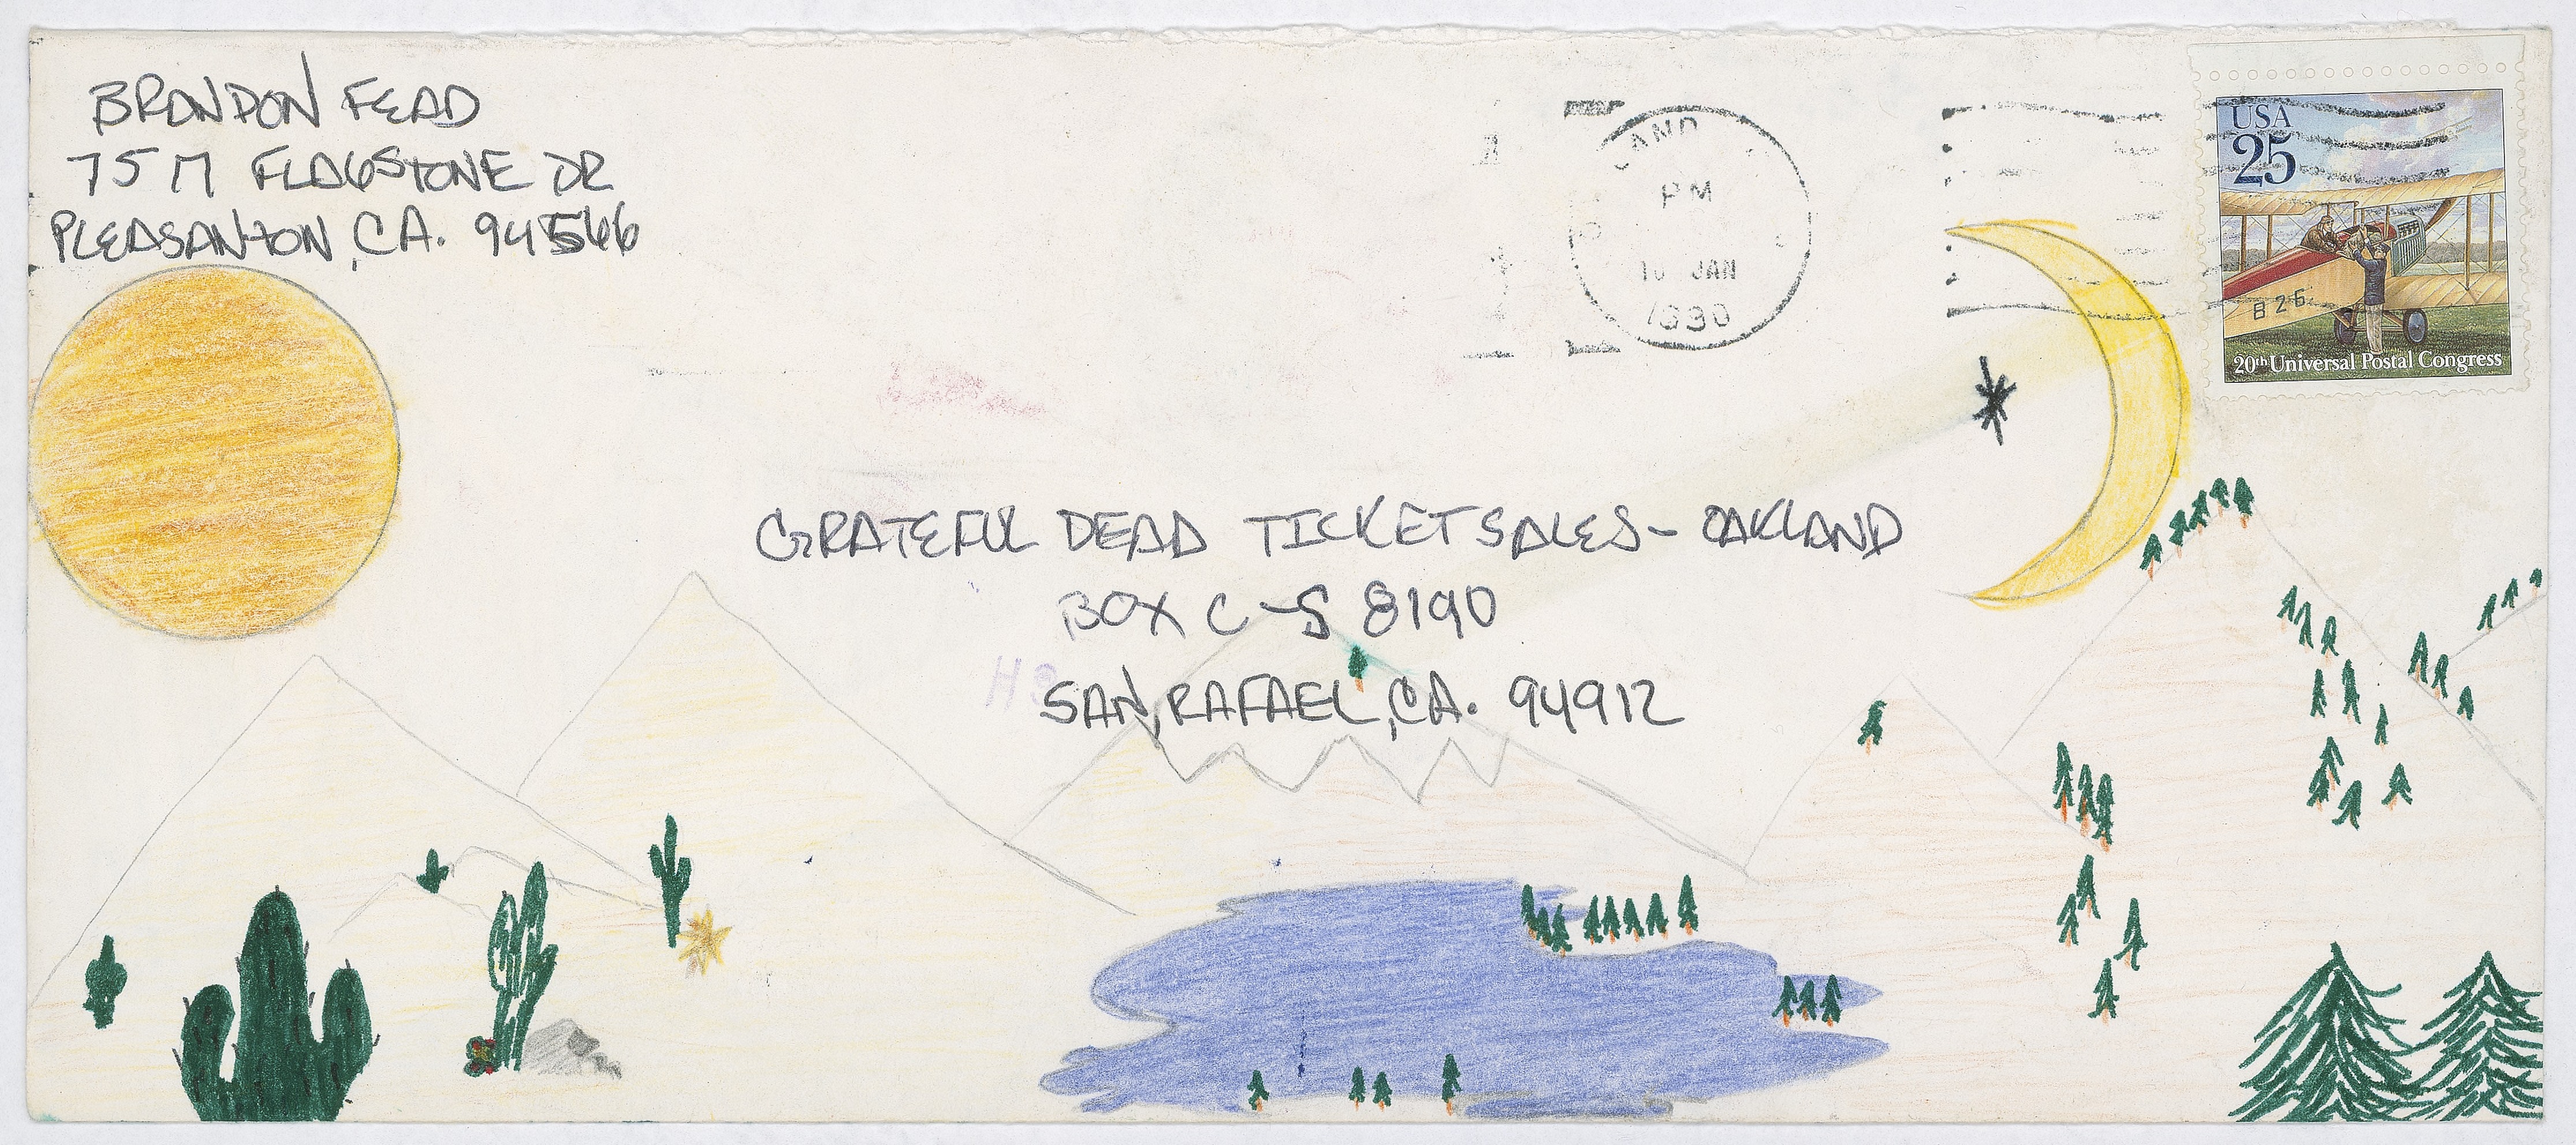 BRANDON FEAD
7517 FLAGSTONE DR
PLEASANTON, CA. 94566
LAND
PM
JAN
1990
USA
25
B 26
20th Universal Postal Congress
GRATEFUL DEAD TICKET SALES- OAKLAND
BOX C-S 8190
SAN, RAFAEL, CA. 94912